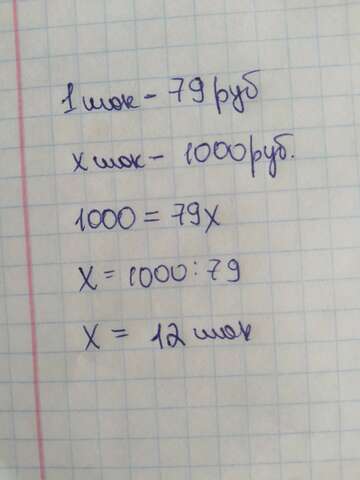 1 шок - 79 руб
х шок - 1000 руб.
1000 = 79х
х = 1000 : 79
х = 12 шок